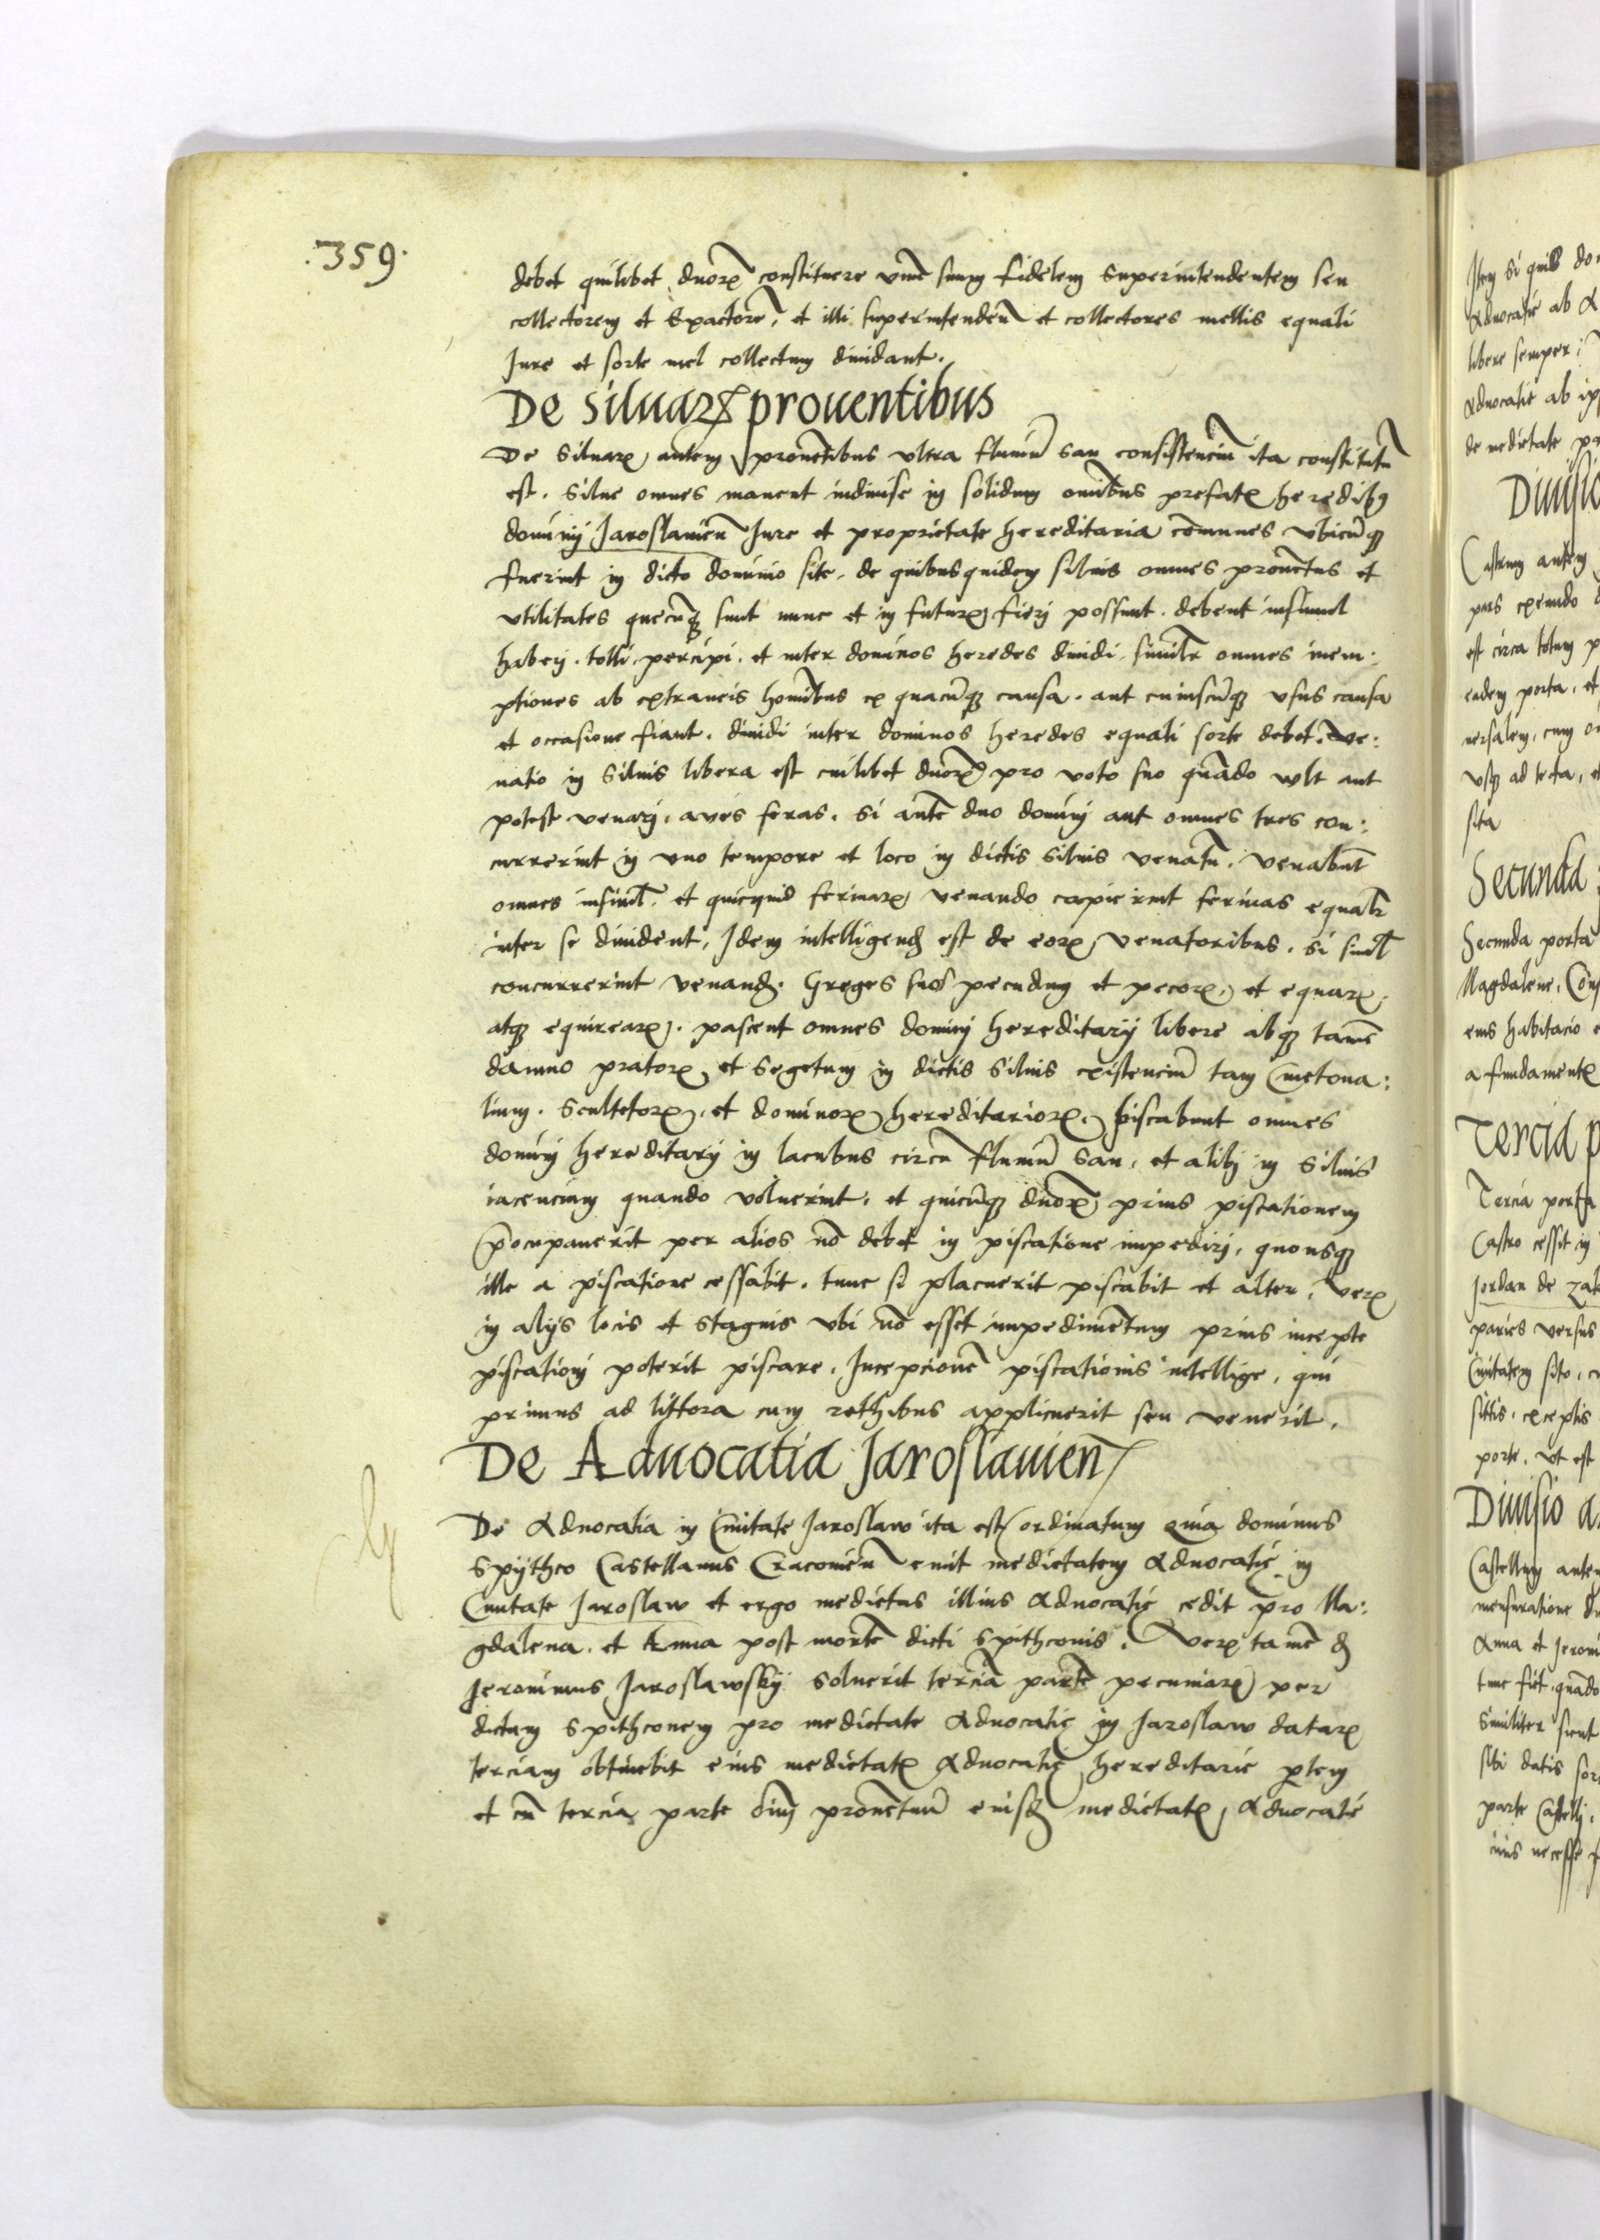 .359.
debet quilibet duorꝝ constituere vnū suum fidelem Superintendentem seu
collectorem et Exactorē, et illi superintendēn et collectores mellis equali
Jure et sorte mel collectum diuidant.
De siluarꝝ prouentibus
De siluarꝝ autem prouētibus vltra fluuiū San consistenciū ita constitutū
est. Silue omnes manent indiuise in solidum omībus prefatꝭ heredibꝰ
dominij Jaroslauien̄ Jure et proprietate hereditaria cōmunes vbicūqꝫ
fuerint in dicto dominio site. de quibusquidem siluis omnes prouētus et
vtilitates quecūqꝫ sunt nunc et in futurꝭ fieri possunt. debent insimul
haberj. tolli, percipi. et inter dominos heredes diuidi. similr̄ omnes inem:
ptiones ab extraneis hominībus ex quacūqꝫ causa. aut cuiuscūqꝫ vsus causa
et occasione fiant. diuidi inter dominos heredes equali sorte debet. Ve:
natio in siluis libera est cuilibet duorꝝ pro voto suo quādo wlt aut
potest venarj, aues feras. Si autē duo dominj aut omnes tres con:
currerint in vno tempore et loco in dictis siluis venatū. venabūt
omnes insimł. et quicquid ferinarꝝ venando capierint ferinas equalr̄
inter se diuident. Idem intelligendꝫ est de eorꝝ venatoribus. si simł
concurrerint venandꝫ. Greges suos pecudum et pecorꝝ. et equarꝝ,
atqꝫ equirearꝝ. pascent omnes dominj hereditarij libere absqꝫ tamē
damno pratorꝝ et segetum in dictis siluis existenciū tam Cmetona:
lium. Scultetorꝝ. et dominorꝝ hereditariorꝝ. piscabunt omnes
dominj hereditarij in lacubus circa fluuiū San, et alibj in siluis
iacencium quando voluerint. et quicūqꝫ duorꝝ prius piscationem
p̄ocupauerit per alios nō debet in piscatione impedirj, quousqꝫ
ille a piscatione cessabit. tunc si placuerit piscabit et alter. Verꝝ
in alijs locis et stagnis vbi nō esset impedimētum prius incepte
piscationj poterit piscare. Incepcionē piscationis intellige, qui
primus ad littora cum rethibus applicuerit seu venerit.
De Aduocatia Jaroslauien̄
De Aduocatia in Ciuitate Jaroslaw ita est ordinatum Quia dominus
Spijthco Castellanus Cracouien̄ emit medietatem Aduocatie in
Ciuitate Jaroslaw et ergo medietas illius Aduocatie cedit pro Ma:
gdalena. et Anna post mortē dicti Spithconis. Verꝝ tamē d
Jeronimus Jaroslawskij soluerit terciā partē pecuniarꝝ per
dictum Spithconem pro medietate Aduocatie in Jaroslaw datarꝝ
terciam obtinebit eius medietatꝭ Aduocatie hereditarie ptem
et cū tercia parte oīum prouētuū eiusdꝫ medietatꝭ, Aduocatē
Item si quis
Aduocatie ab
libere semper
Aduocatie ab
de medietate
Castrum autem
est circa totum
eadem porta, et
uersalem, cum
vsqꝫ ad tecta,
sita
Secunda
Secunda porta
Magdalene,
eius habitacio
a fundamentꝭ
Tercia
Tercia porta
Castro cessit in
Jordan de
paries versus
Ciuitatem sito,
sittis. exceptis
porte. vt est
Diuisio
Castellum
mensuratione
Anna et
tunc fiet, quādo
Similiter
sibi datis
parte Castelli,